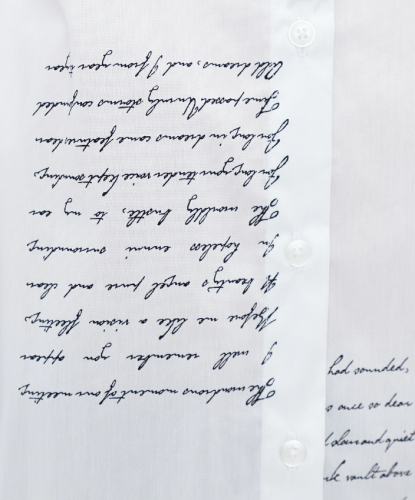 The wondrous moment of our meeting
I well remember you appear
Before me like a vision fleeting,
A beauty's angel pure and clear
In hopeless ennui surrounding
The worldly bustle, to my ear
For long your tender voice kept sounding,
For long in dreams came features dear
Time passed. Unruly storms confounded
Old dreams, and I from year to year
had sounded,
s once so dear
slow and quiet
rk vault above